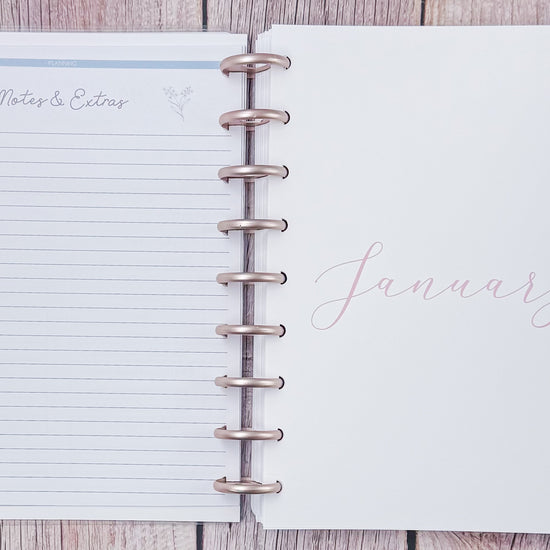 PLANNING
Notes & Extras
January